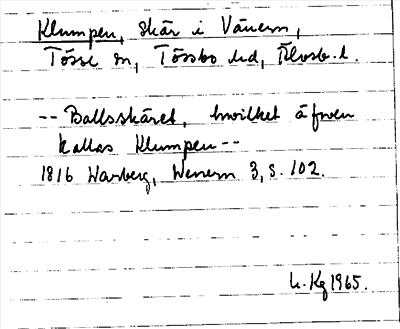 Klumpen, skär i Vänern,
Tösse sn, Tössbo hd, Älvsb. l.
-- Ballsskäret, hwilket äfwen
kallas Klumpen --
1816 Warberg, Wenern 3, s. 102.
L. Kg 1965.